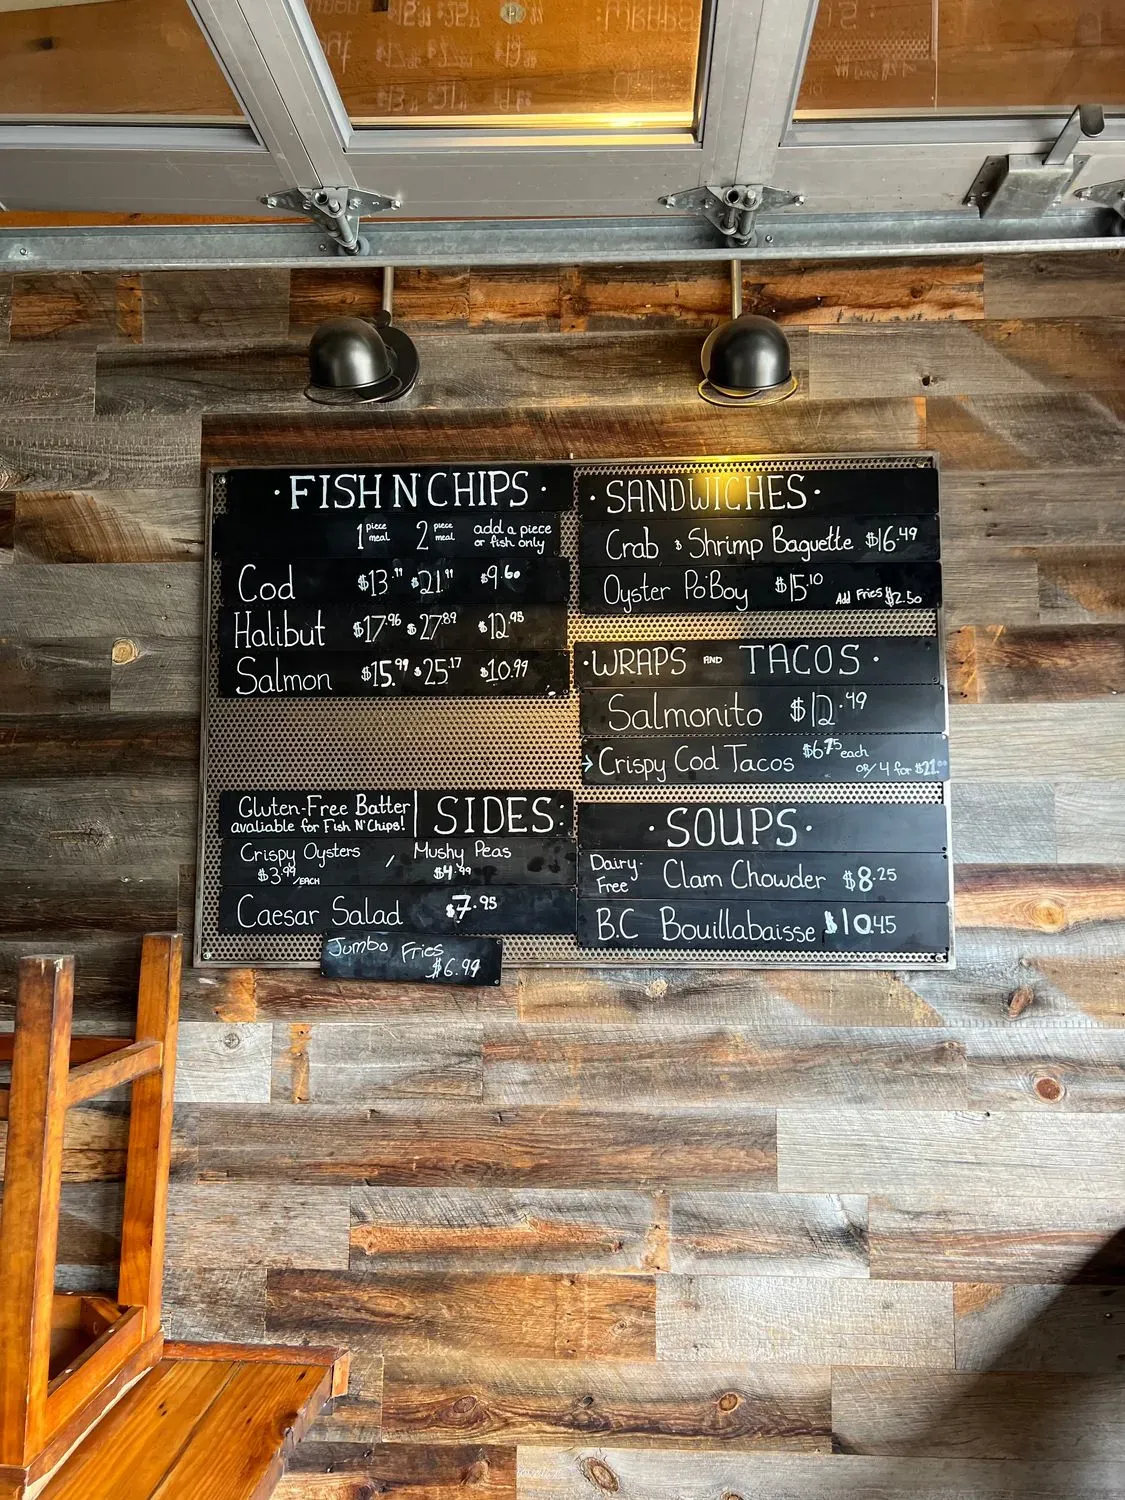 · FISH N' CHIPS ·
1 piece meal 2 piece meal add a piece or fish only
Cod $13.99 $21.99 $9.60
Halibut $17.96 $27.89 $12.95
Salmon $15.99 $25.17 $10.99
Gluten-Free Batter
avaliable for Fish N' Chips!
SIDES:
Crispy Oysters / Mushy Peas
$3.99/EACH $4.99
Caesar Salad $7.95
Jumbo Fries
$6.99
· SANDWICHES ·
Crab & Shrimp Baguette $16.49
Oyster Po'Boy $15.10 Add Fries $2.50
· WRAPS AND TACOS ·
Salmonito $12.49
→ Crispy Cod Tacos $6.75 each
or/ 4 for $21.00
· SOUPS ·
Dairy-Free Clam Chowder $8.25
B.C Bouillabaisse $10.45